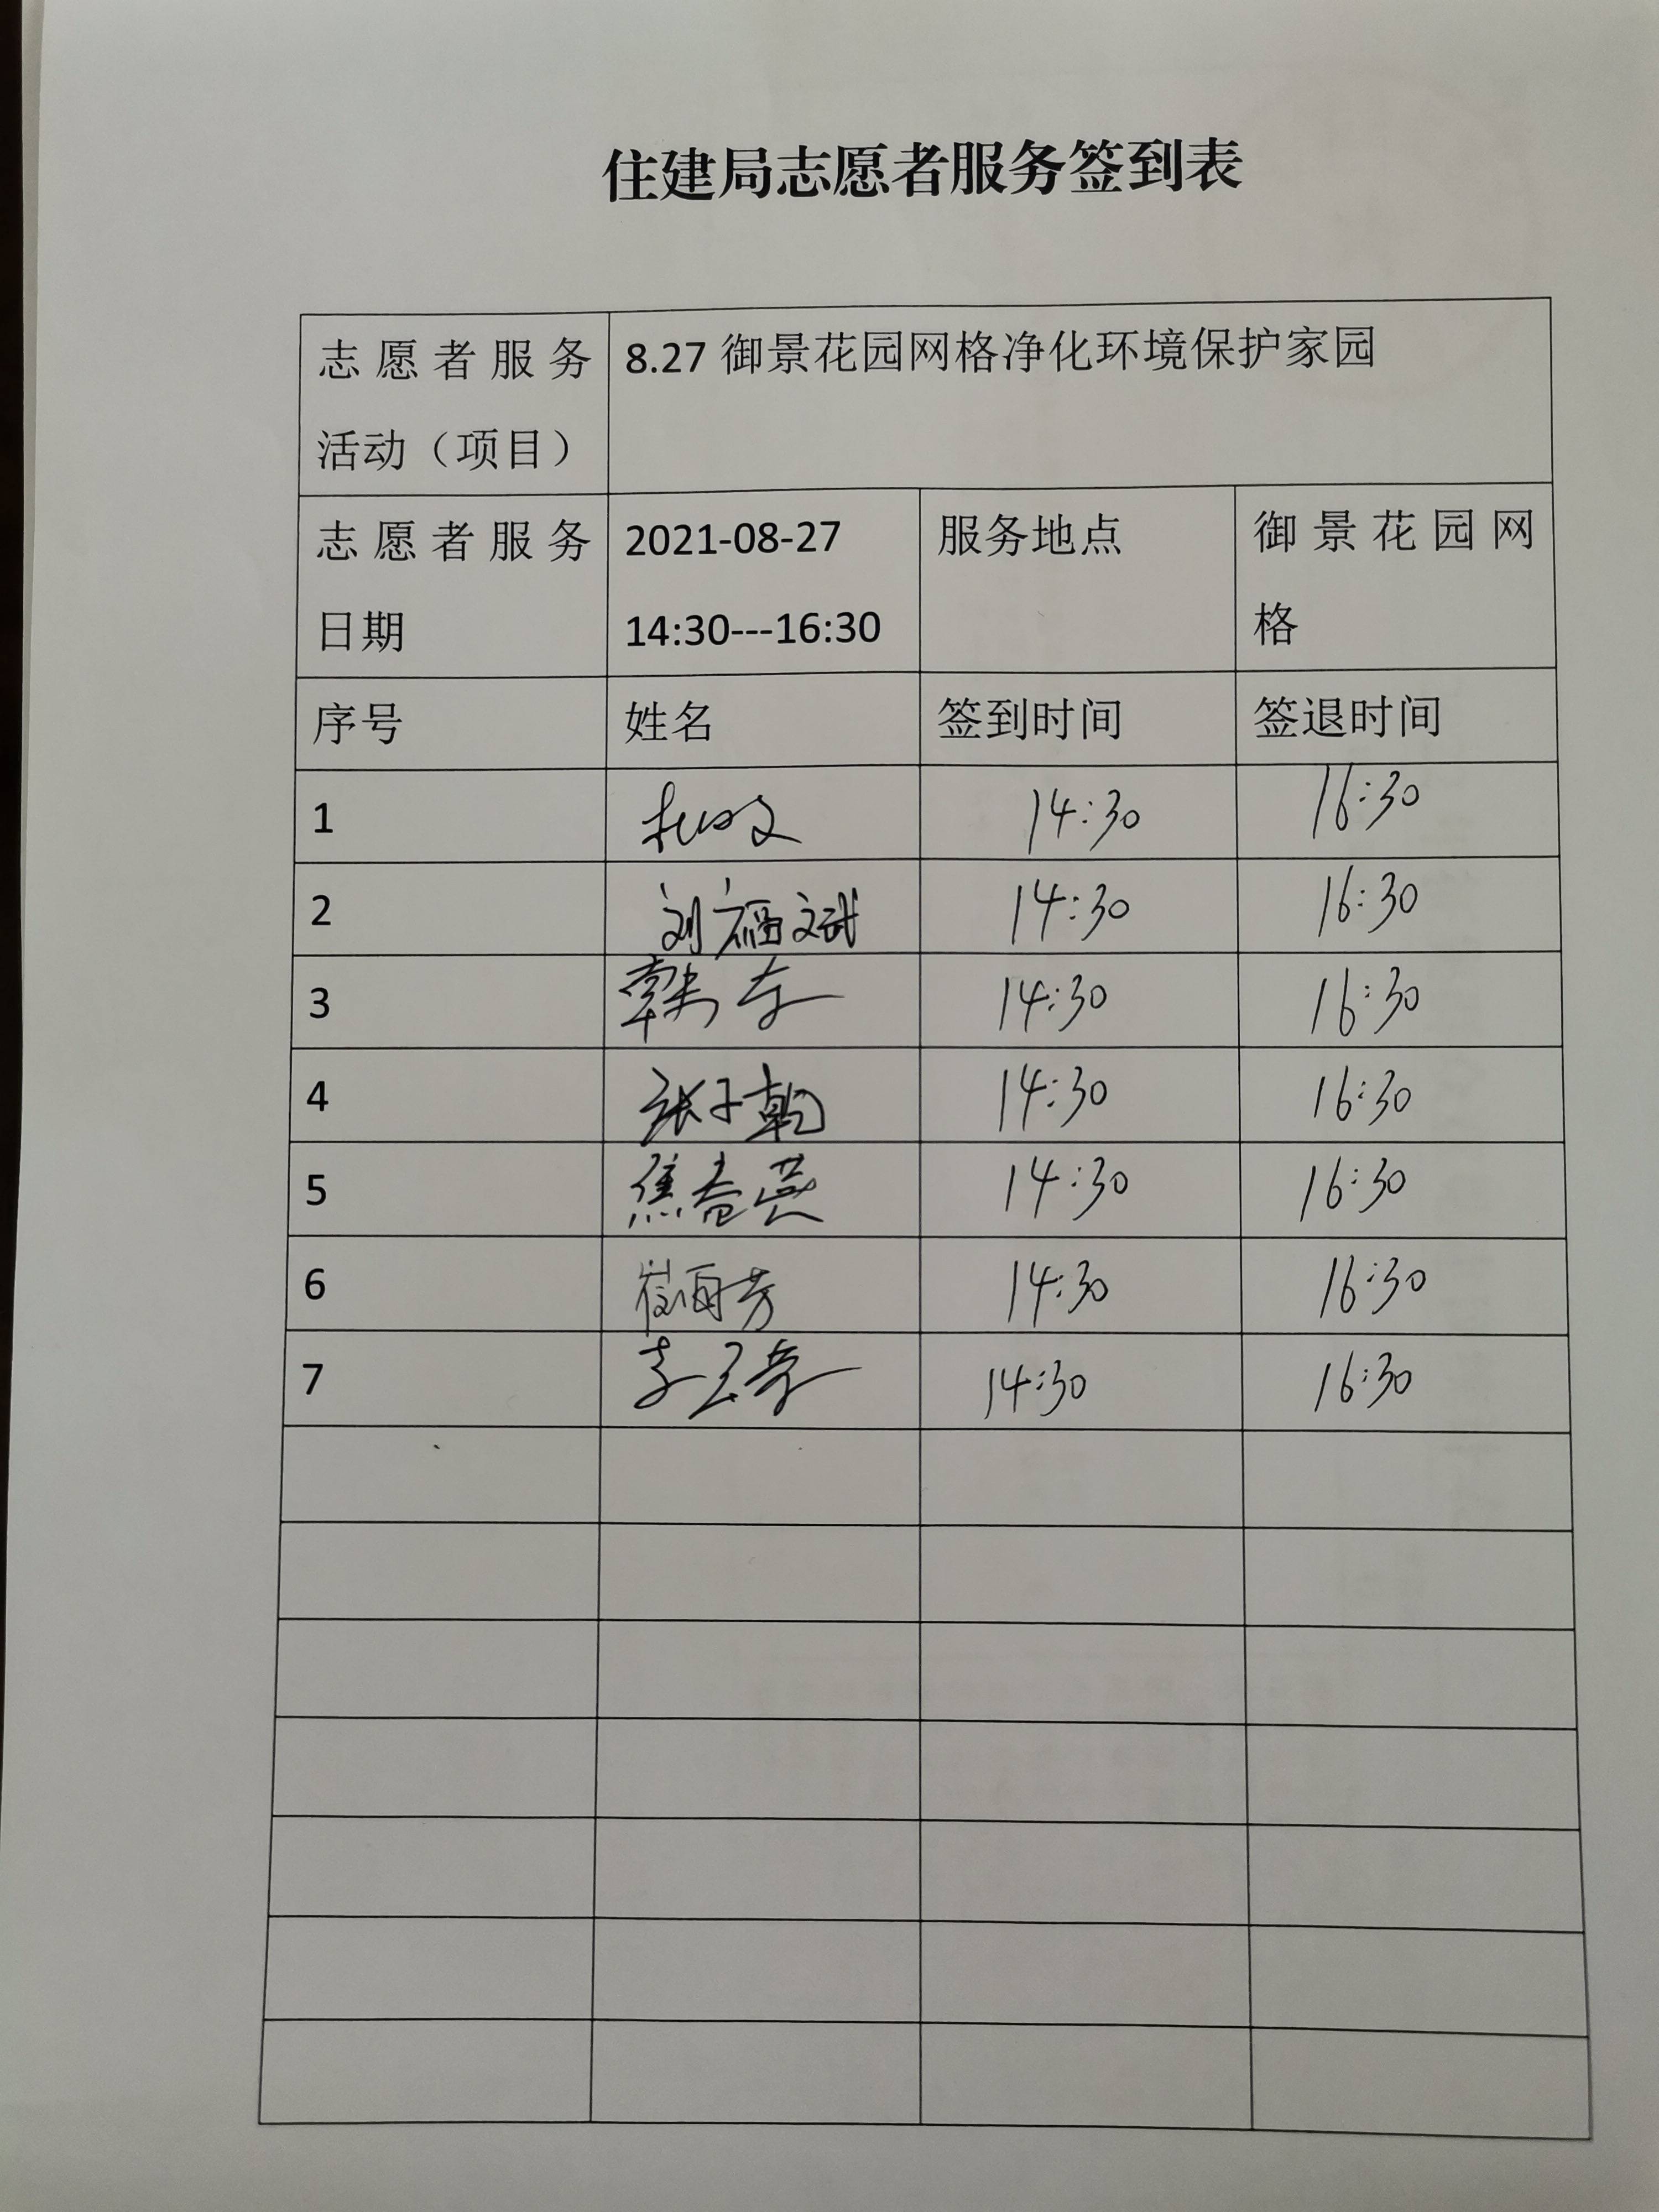 住建局志愿者服务签到表
志愿者服务 8.27 御景花园网格净化环境保护家园
活动（项目）
志愿者服务 2021-08-27 服务地点 御景花园网
日期 14:30---16:30 格
序号 姓名 签到时间 签退时间
1 14:30 16:30
2 14:30 16:30
3 14:30 16:30
4 张子乾 14:30 16:30
5 焦春燕 14:30 16:30
6 14:30 16:30
7 14:30 16:30